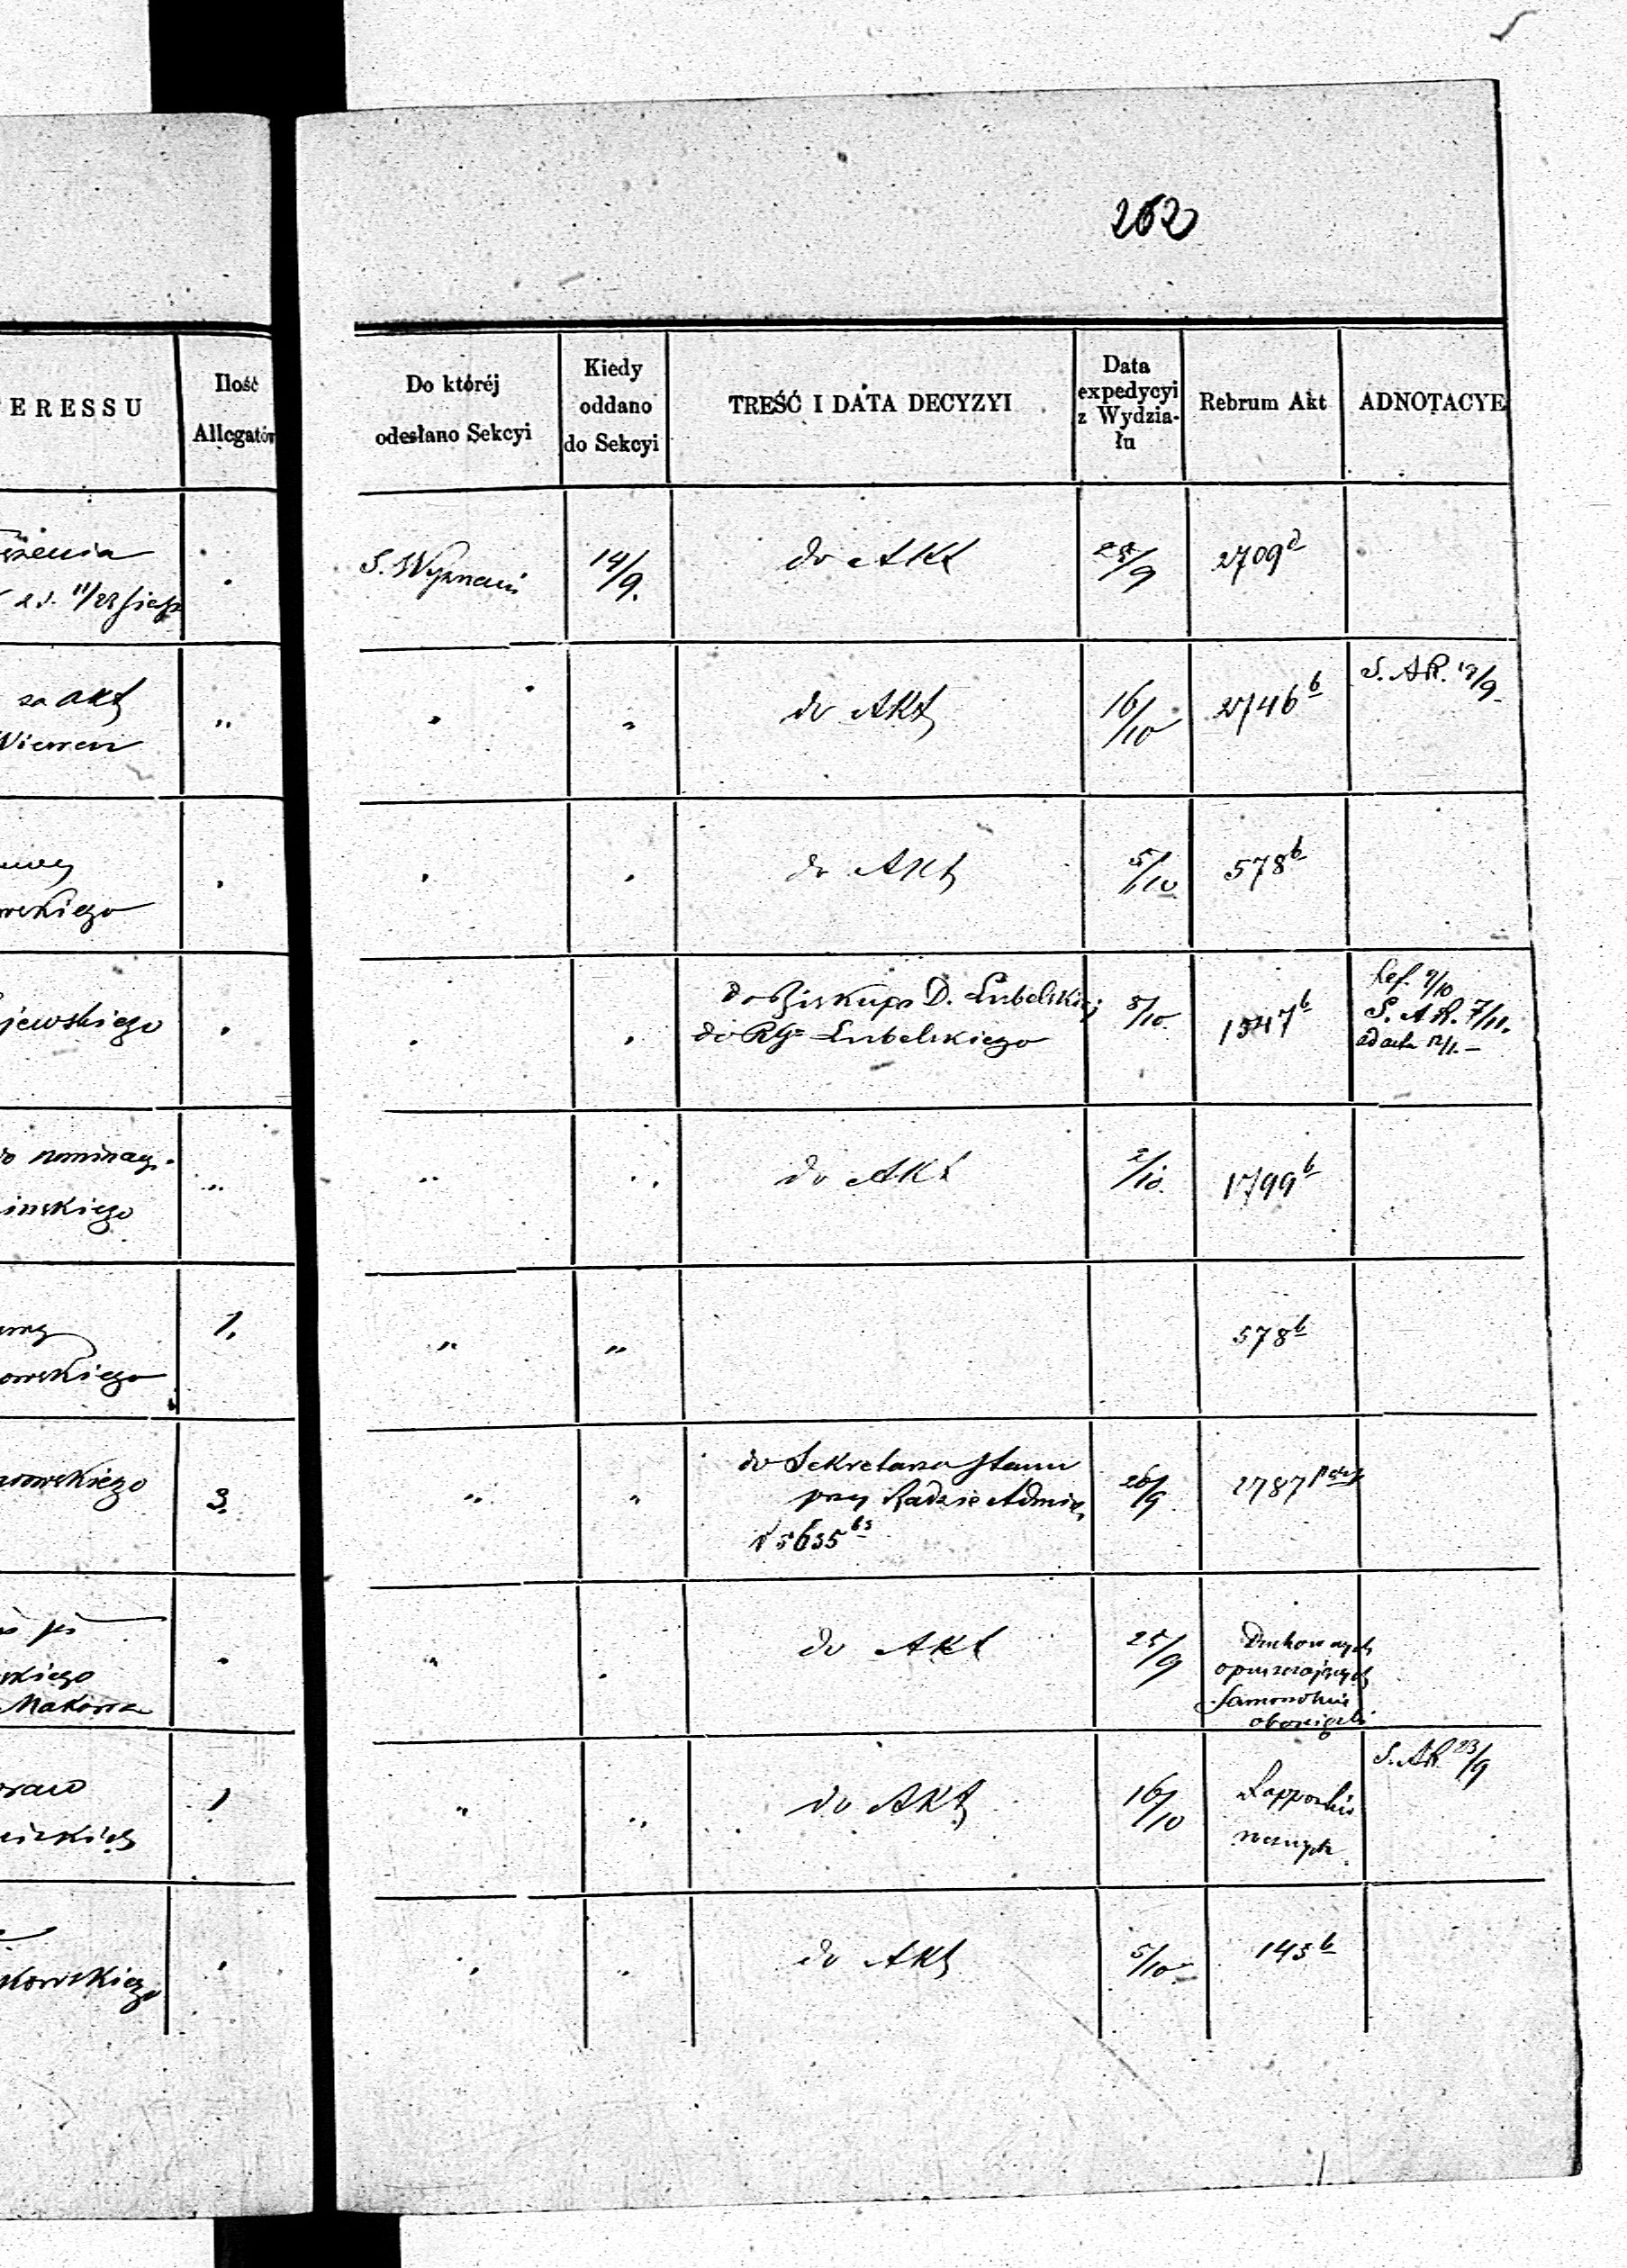 262
ERESSU
Ilość
Allegatów
Do któréj
odesłano Sekcyi
Kiedy
oddano
do Sekcyi
TREŚĆ I DATA DECYZYI
Data
expedycyi
z Wydzia-
łu
Rebrum Akt
ADNOTACYE
S. Wyznań
14/9.
do Akt
/9
2709 d
za akt
"
do Akt
16/10
2746 b
S. AR. 19/9
wskiego
do Akt
5/10
578 b
jewskiego
do Biskupa D. Lubelskiej
do RG Lubelskiego
8/10
1547 b
Ref. 9/10
S. A R. 7/11.
ad acta 12/1. -
do nominacy.
inskiego
"
do Akt
2/10.
1799 b
owskiego
1.
"
"
578 b
rowskiego
3.
"
"
do Sekretarza Stanu
przy Radzie Admin
N 5635
26/9
2787
skiego
Makowa
"
do Akt
25/9
Duchownych
opuszczających
samowolnie
obowiązki
1
"
"
do Akt
16/10
Rapporta
roczne
S. AR 23/9
kowskiego
"
"
do Akt
5/10
145 b